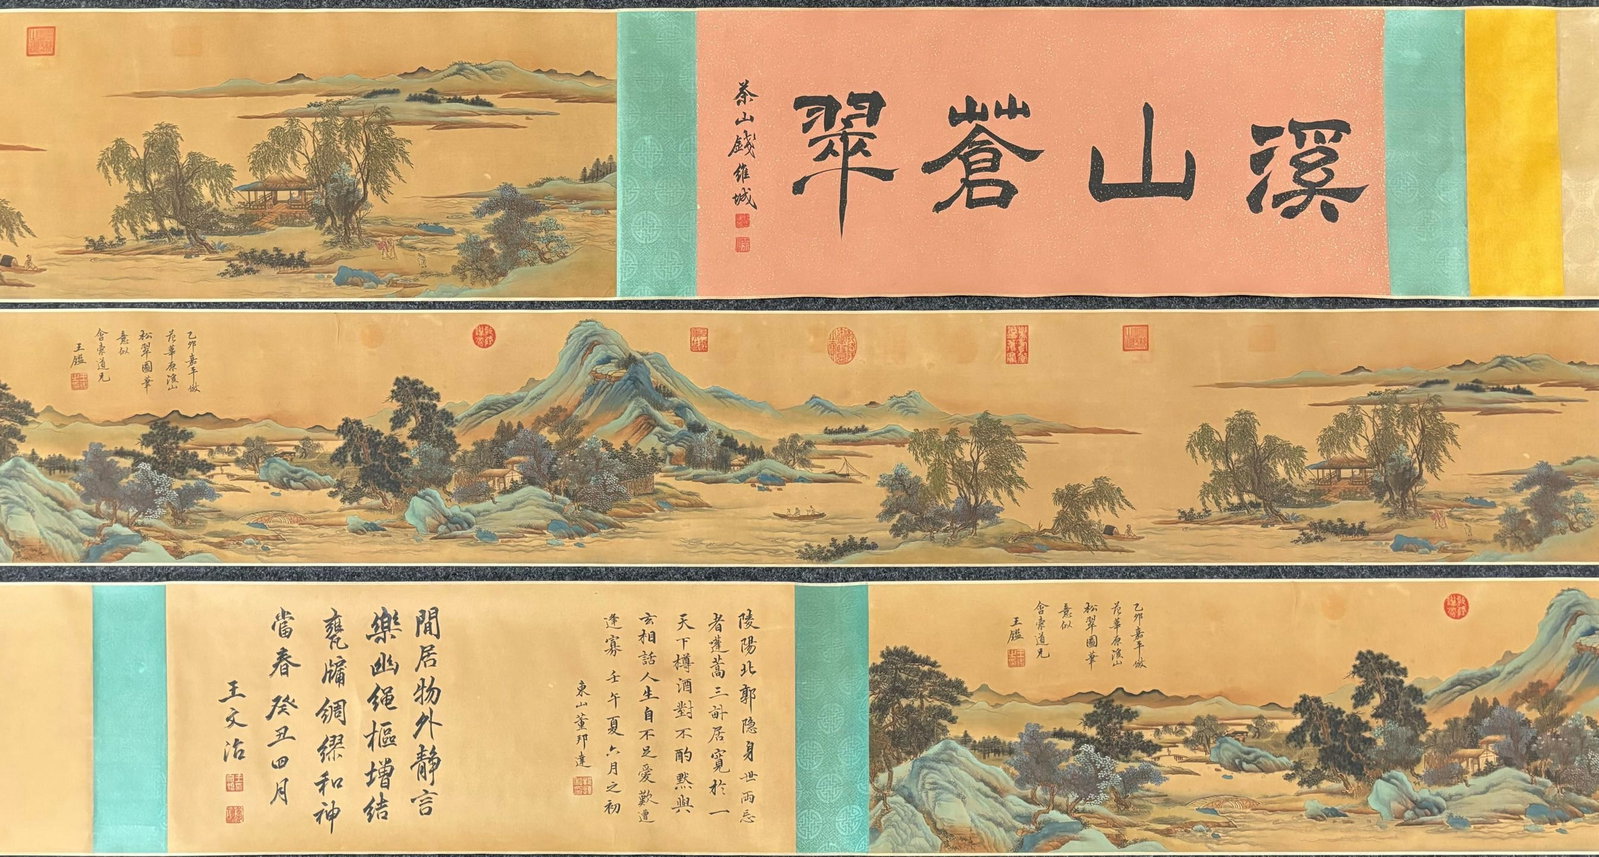 溪山蒼翠
茶山錢維城
乙卯嘉平倣
范華原溪山
松翠圖筆
意似
會宗道兄
王鑑
乙卯嘉平倣
范華原溪山
松翠圖筆
意似
會宗道兄
王鑑
陵陽北郭隱身世兩忘
者蓬蒿三畝居寬於一
天下樽酒對不酌默與
玄相話人生自不足愛歎遭
逢寡 壬午夏六月之初
東山董邦達
閒居物外靜言
樂幽繩樞增結
甕牖綢繆和神
當春 癸丑四月
王文治